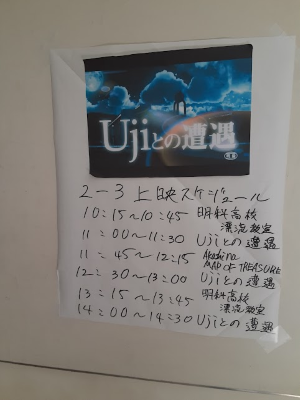 Ujiとの遭遇
2-3 上映スケジュール
10:15~10:45 明科高校
漂流教室
11:00~11:30 Ujiとの遭遇
11:45~12:15 Akashina
MAP OF TREASURE
12:30~13:00 Ujiとの遭遇
13:15~13:45 明科高校
漂流教室
14:00~14:30 Ujiとの遭遇